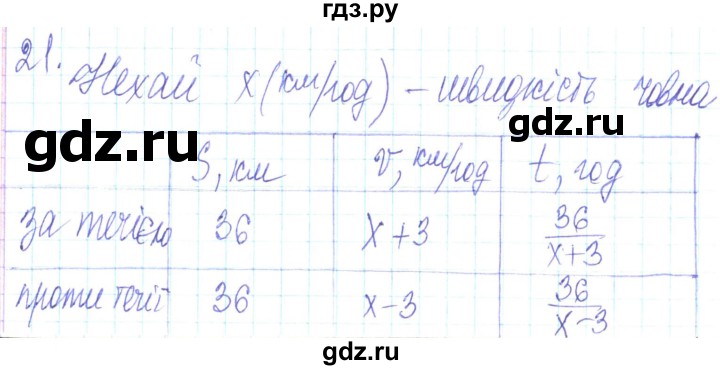 гдз.ру
21. Нехай x (км/год) – швидкість човна
S, км v, км/год t, год
за течією 36 x + 3 36/(x+3)
проти течії 36 x – 3 36/(x–3)
gdz.ru
gdz.ru
gdz.ru
gdz.ru
gdz.ru